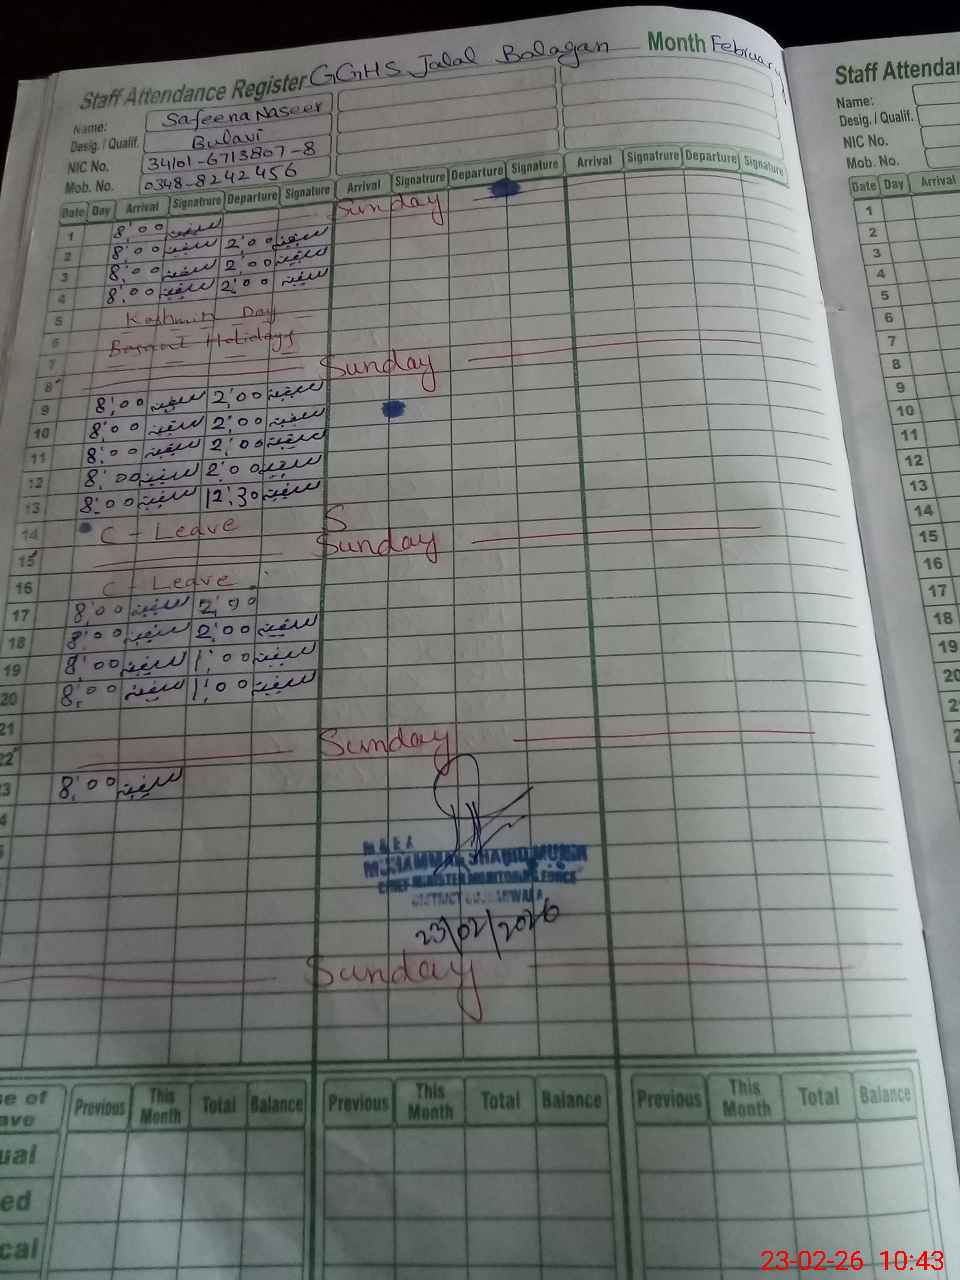 Staff Attendance Register GGHS Jalal Balagan Month February
Name: Safeena Naseer
Desig. / Qualif. Bulavi
NIC No. 34101-6713807-8
Mob. No. 0348-8242456
Date Day Arrival Signatrure Departure Signature Arrival Signatrure Departure Signature Arrival Signatrure Departure Signature
1 8:00 سفینہ Sunday
2 8:00 سفینہ 2:00 سفینہ
3 8:00 سفینہ 2:00 سفینہ
4 8:00 سفینہ 2:00 سفینہ
5 Kashmir Day
6 Basant Holidays
7
8 Sunday
9 8:00 سفینہ 2:00 سفینہ
10 8:00 سفینہ 2:00 سفینہ
11 8:00 سفینہ 2:00 سفینہ
12 8:00 سفینہ 2:00 سفینہ
13 8:00 سفینہ 12:30 سفینہ
14 C - Leave S
15 Sunday
16 C - Leave
17 8:00 سفینہ 2:00
18 8:00 سفینہ 2:00 سفینہ
19 8:00 سفینہ 1:00 سفینہ
20 8:00 سفینہ 1:00 سفینہ
21
22 Sunday
23 8:00 سفینہ
4
MUHAMMAD SHAHID
CHIEF MINISTER MONITORING FORCE
DISTRICT GUJRANWALA
23/02/2026
Sunday
Previous This Month Total Balance Previous This Month Total Balance Previous This Month Total Balance
ual
ed
cal
Staff Attendan
Name:
Desig. / Qualif.
NIC No.
Mob. No.
Date Day Arrival
1
2
3
4
5
6
7
8
9
10
11
12
13
14
15
16
17
18
19
20
2
23-02-26 10:43